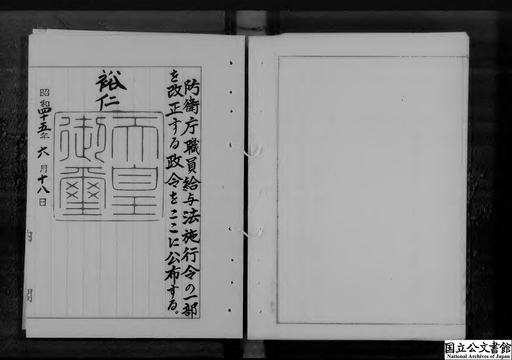 防衛庁職員給与法施行令の一部
を改正する政令をここに公布する。
裕仁
天皇
御璽
昭和四十五年六月十八日
国立公文書館
National Archives of Japan